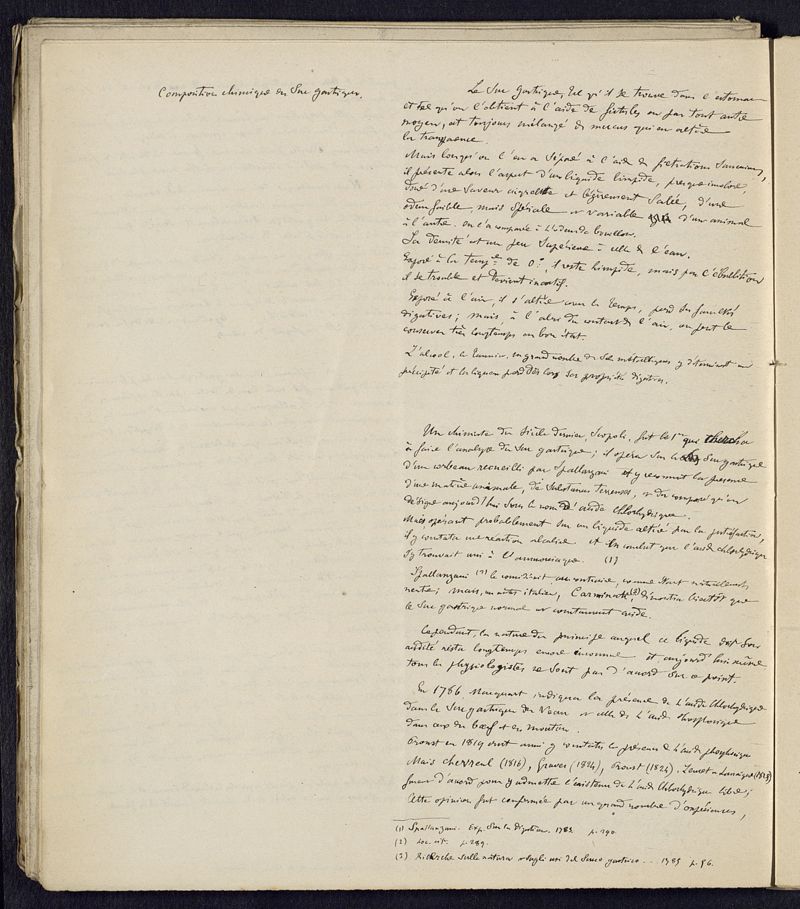 Composition chimique du Suc gastrique.
Le Suc gastrique, tel qu'il se trouve dans l'estomac
et tel qu'on l'obtient à l'aide de fistules ou par tout autre
moyen, est toujours mélangé de mucus qui en altère
la transparence.
Mais lorsqu'on l'en a séparé à l'aide de filtrations
il présente alors l'aspect d'un liquide limpide, presque incolore,
doué d'une saveur aigrelette et légèrement salée, d'une
odeur faible, mais spéciale et variable d'un animal
à l'autre. on l'a comparée à l'odeur de bouillon.
Sa densité est un peu supérieure à celle de l'eau.
Exposé à la temp.re de 0°, il reste limpide, mais par l'ébullition
il se trouble et devient inactif.
Exposé à l'air, il s'altère avec le temps, perd ses facultés
digestives; mais, à l'abri du contact de l'air, on peut le
conserver très longtemps en bon état.
L'alcool, le tannin, un grand nombre de sels métalliques y déterminent un
précipité et la liqueur perd dès lors ses propriétés digestives.
Un chimiste du siècle dernier, Scopoli, fut le 1er qui chercha
à faire l'analyse du suc gastrique; il opéra sur le suc gastrique
d'un corbeau recueilli par Spallanzani et y reconnut la présence
d'une matière animale, de substances terreuses, et du composé qu'on
désigne aujourd'hui sous le nom d'acide chlorhydrique.
Mais, opérant probablement sur un liquide altéré par la putréfaction,
il y constata une réaction alcaline et en conclut que l'acide chlorhydrique
s'y trouvait uni à l'ammoniaque. (1)
Spallanzani (2) le considérait au contraire, comme étant naturellement
neutre; mais, un autre italien, Carminati (3), démontra bientôt que
le suc gastrique normal est constamment acide.
Cependant, la nature du principe auquel ce liquide doit son
acidité resta longtemps encore inconnue et aujourd'hui même
tous les physiologistes ne sont pas d'accord sur ce point.
En 1786 Macquart indiqua la présence de l'acide chlorhydrique
dans le suc gastrique du Veau et celle de l'acide phosphorique
dans ceux du bœuf et du mouton.
Proust en 1819 crut aussi y constater la présence de l'acide phosphorique
Mais Chevreul (1816), Graves (1824), Prout (1824), Leuret et Lassaigne (1825)
furent d'accord pour y admettre l'existence de l'acide chlorhydrique libre;
Cette opinion fut confirmée par un grand nombre d'expériences,
(1) Spallanzani. Exp. sur la digestion. 1783. p. 290
(2) loc. cit. p. 289.
(3) Ricerche sulla natura e sugli usi del succo gastrico ... 1785 p. 56.